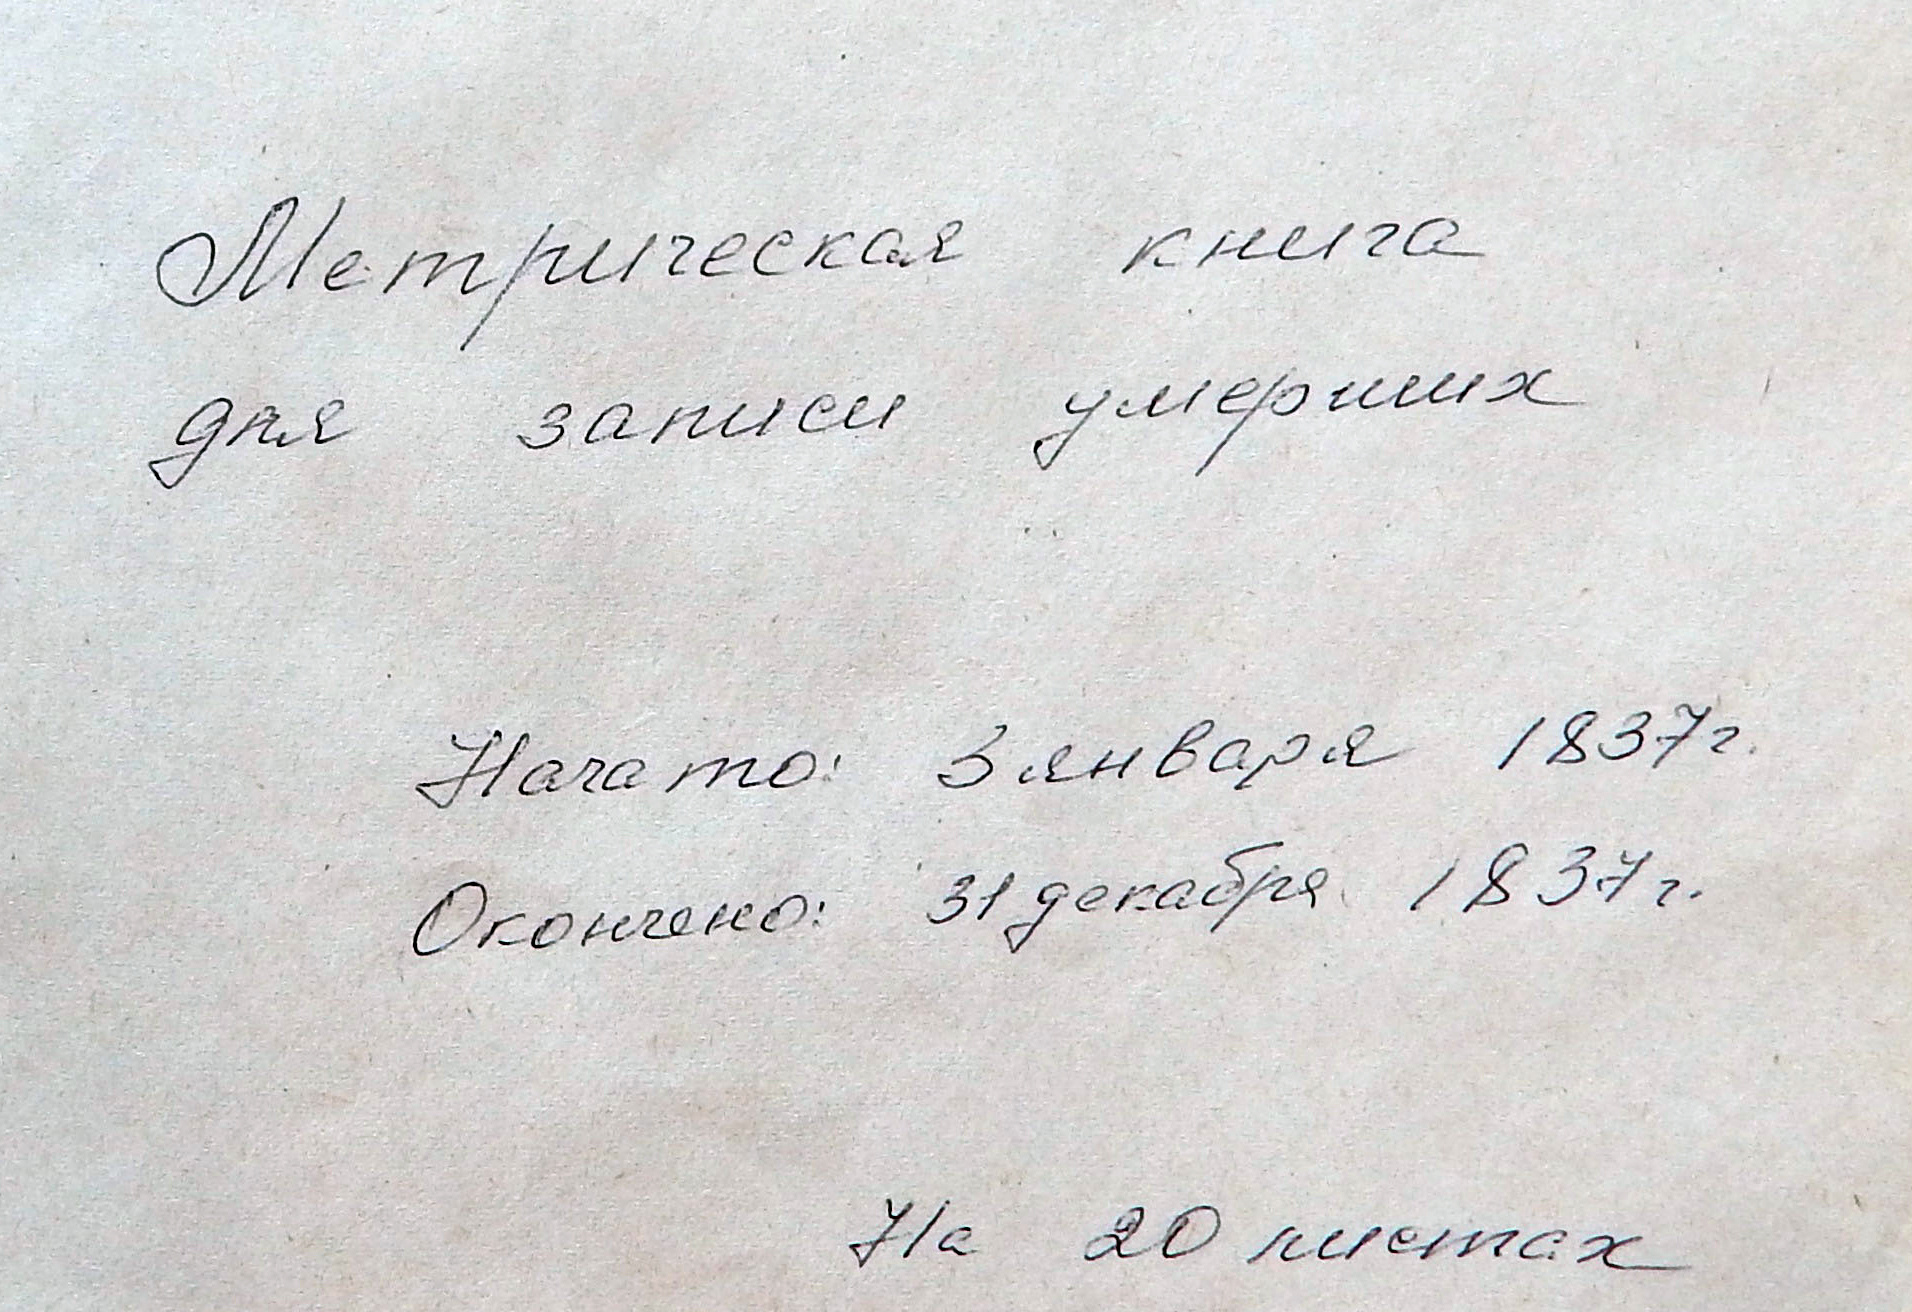 Метрическая книга
для записи умерших
Начато: 3 января 1837 г.
Окончено: 31 декабря 1837 г.
На 20 листах